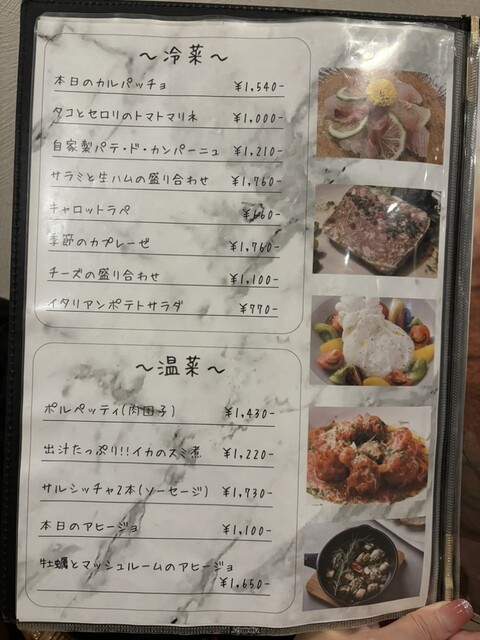 ～冷菜～
本日のカルパッチョ ¥1,540-
タコとセロリのトマトマリネ ¥1,000-
自家製パテ・ド・カンパーニュ ¥1,210-
サラミと生ハムの盛り合わせ ¥1,760-
キャロットラペ ¥660-
季節のカプレーゼ ¥1,760-
チーズの盛り合わせ ¥1,100-
イタリアンポテトサラダ ¥770-
～温菜～
ポルペッティ(肉団子) ¥1,430-
出汁たっぷり!!イカのスミ煮 ¥1,220-
サルシッチャ2本(ソーセージ) ¥1,730-
本日のアヒージョ ¥1,100-
牡蠣とマッシュルームのアヒージョ
¥1,650-